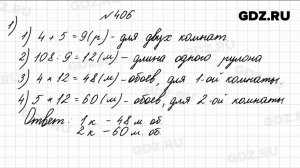 GDZ.RU
№ 406
1)
1) 4 + 5 = 9 (р) - для двух комнат
2) 108 : 9 = 12 (м) - длина одного рулона
3) 4 × 12 = 48 (м) - обоев, для 1-ой комнаты
4) 5 × 12 = 60 (м) - обоев, для 2-ой комнаты
Ответ: 1 к. - 48 м об.
2 к. - 60 м. об.
GDZ.RU